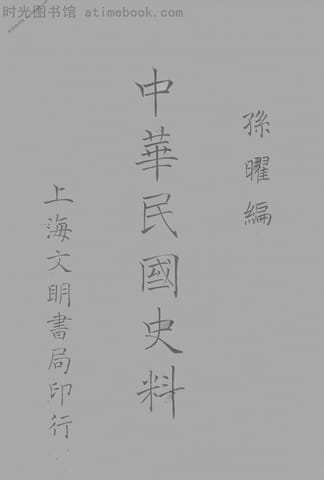 时光图书馆 atimebook.com
孫曜編
中華民國史料
上海文明書局印行